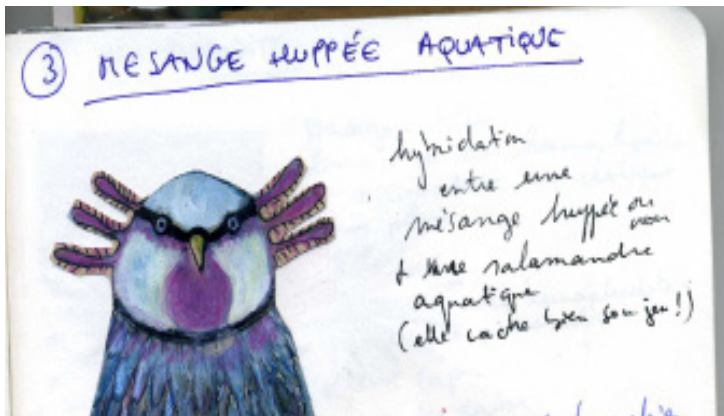 ③ MESANGE HUPPÉE AQUATIQUE
hybridation
entre une
mésange huppée ou
non
+ une salamandre
aquatique
(elle cache bien son jeu !)